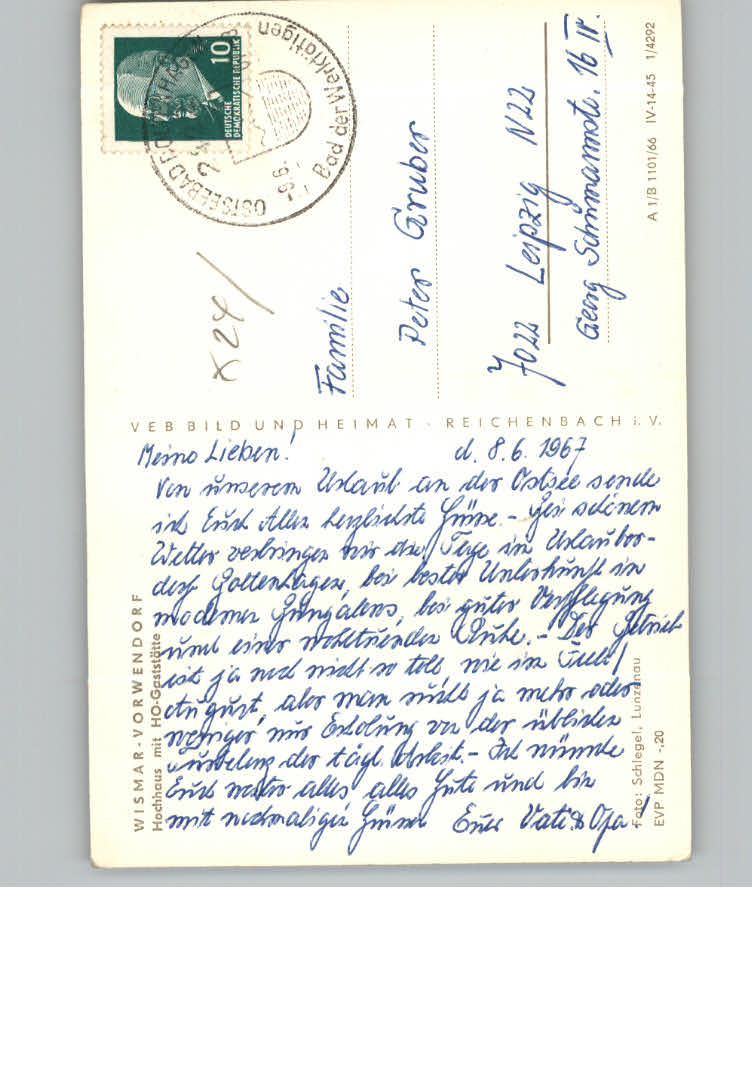 Meine Lieben!
d. 8.6.1967
Von unserem Urlaub an der Ostsee sende
ich Euch Allen herzlichste Grüsse. - Bei schönem
Wetter verbringen wir die Tage im Urlauber-
dorf Boltenhagen, bei bester Unterkunft in
modernen Bungalows, bei guter Verpflegung
und einer wohltuenden Ruhe. - Der Betrieb
ist ja noch nicht so toll wie im Juli/
August, aber man sucht ja mehr oder
weniger nur Erholung von der üblichen
der tägl. Arbeit. - Ich wünsche
Euch weiter alles alles Gute und bin
mit nochmaligen Grüssen Euer Vati & Opa!
WISMAR-VORWENDORF
Hochhaus mit HO-Gaststätte
Foto: Schlegel, Lunzenau
EVP MDN -,20
VEB BILD UND HEIMAT · REICHENBACH i. V.
x 24/
Familie
Peter Gruber
7022 Leipzig N22
Georg Schumannstr. 16 IV.
A 1/B 1101/66 IV-14-45 1/4292
10
DEUTSCHE
DEMOKRATISCHE REPUBLIK
OSTSEEBAD
Bad der Werktätigen